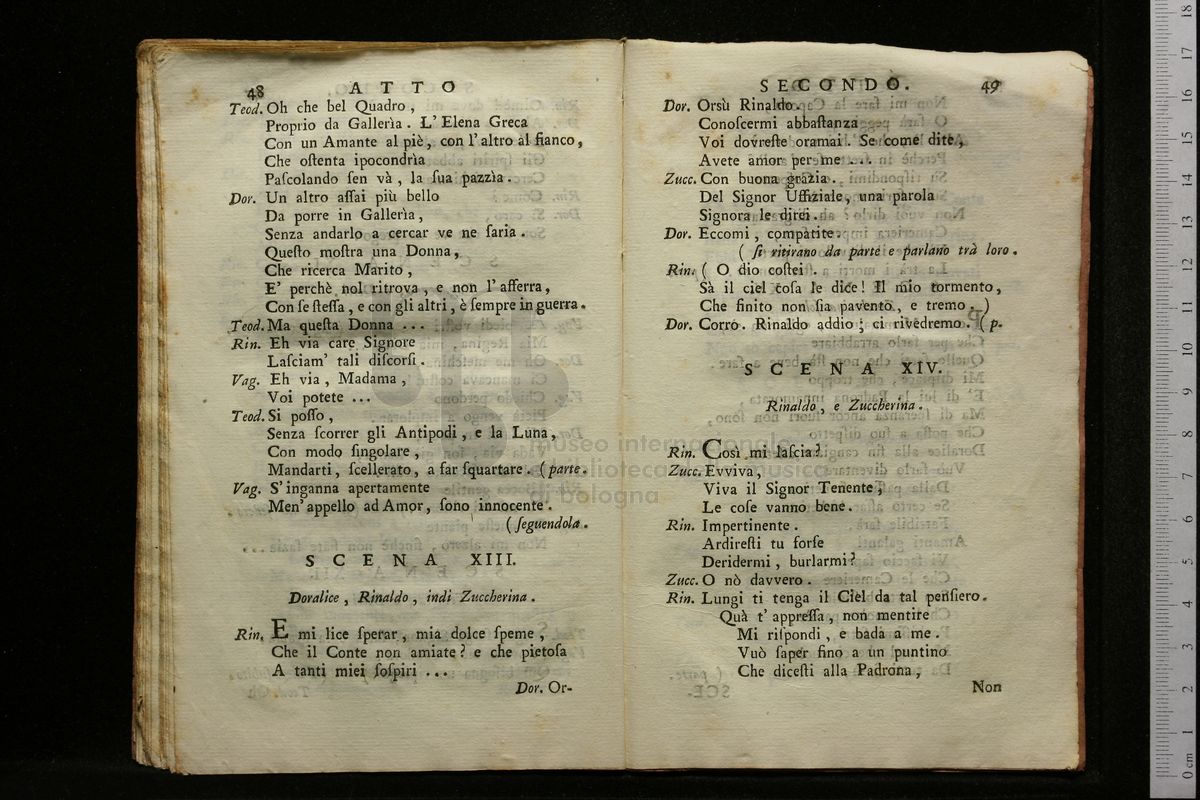 48 ATTO
Teod. Oh che bel Quadro,
Proprio da Gallerìa. L' Elena Greca
Con un Amante al piè, con l' altro al fianco,
Che oſtenta ipocondrìa
Paſcolando ſen và, la ſua pazzìa.
Dor. Un altro aſſai più bello
Da porre in Gallerìa,
Senza andarlo a cercar ve ne ſaria.
Queſto moſtra una Donna,
Che ricerca Marito,
E' perchè nol ritrova, e non l' afferra,
Con ſe ſteſſa, e con gli altri, è ſempre in guerra.
Teod. Ma queſta Donna ...
Rin. Eh via care Signore
Laſciam' tali diſcorſi.
Vag. Eh via, Madama,
Voi potete ...
Teod. Si poſſo,
Senza ſcorrer gli Antipodi, e la Luna,
Con modo ſingolare,
Mandarti, ſcellerato, a far ſquartare. (parte.
Vag. S' inganna apertamente
Men' appello ad Amor, ſono innocente.
(ſeguendola.
SCENA XIII.
Doralice, Rinaldo, indi Zuccherina.
Rin. E mi lice ſperar, mia dolce ſpeme,
Che il Conte non amiate? e che pietoſa
A tanti miei ſoſpiri ...
Dor. Or-
SECONDO. 49
Dor. Orsù Rinaldo.
Conoſcermi abbaſtanza
Voi dovreſte oramai. Se come dite,
Avete amor per me ....
Zucc. Con buona grazia.
Del Signor Uffiziale, una parola
Signora le direi.
Dor. Eccomi, compatite.
( ſi ritirano da parte e parlano trà loro.
Rin. ( O dio coſtei!
Sà il ciel coſa le dice! Il mio tormento,
Che finito non ſia pavento, e tremo. )
Dor. Corro. Rinaldo addio; ci rivedremo. (p.
SCENA XIV.
Rinaldo, e Zuccherina.
Rin. Così mi laſcia?
Zucc. Evviva,
Viva il Signor Tenente,
Le coſe vanno bene.
Rin. Impertinente.
Ardireſti tu forſe
Deridermi, burlarmi?
Zucc. O nò davvero.
Rin. Lungi ti tenga il Ciel da tal penſiero.
Quà t' appreſſa, non mentire
Mi riſpondi, e bada a me.
Vuò ſaper fino a un puntino
Che diceſti alla Padrona,
Non
museo internazionale
biblioteca musica
di bologna
0 cm 1 2 3 4 5 6 7 8 9 10 11 12 13 14 15 16 17 18